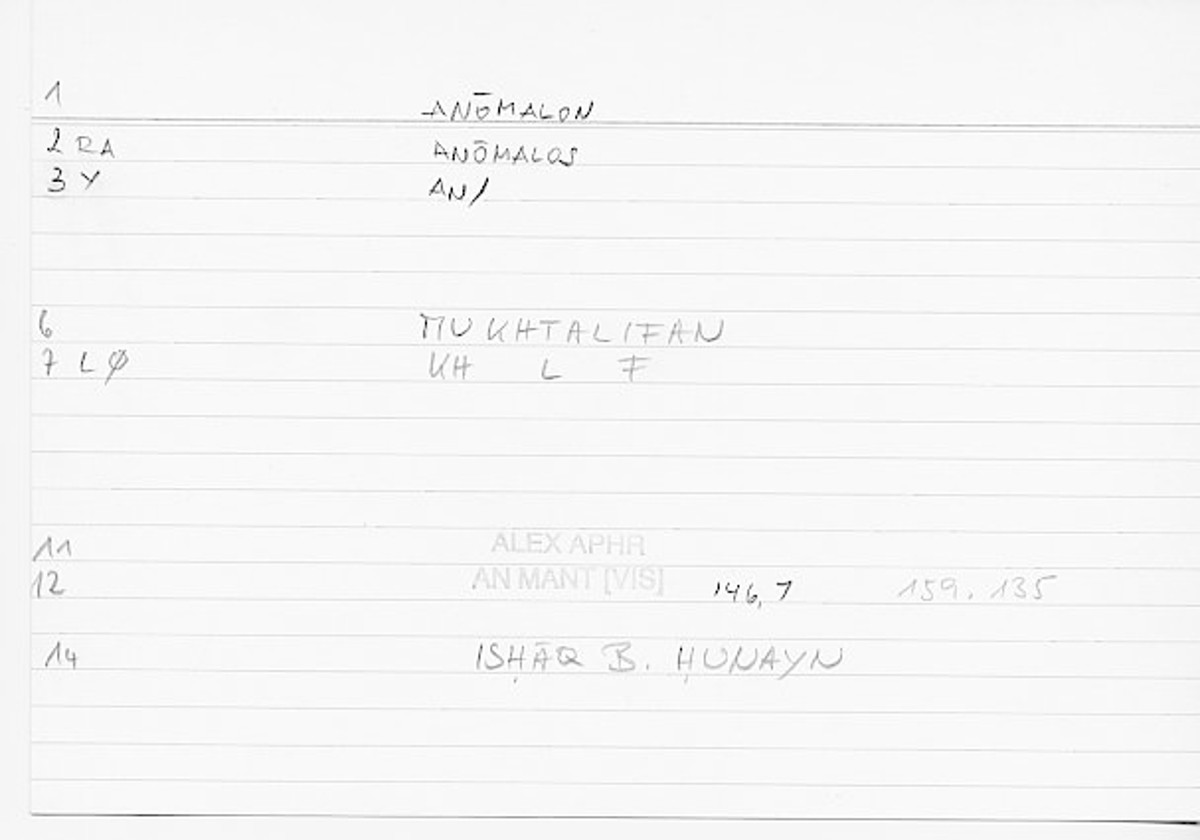 1 ANŌMALON
2 RA ANŌMALOS
3 Y AN/
6 MUKHTALIFAN
7 L Ø KH L F
11 ALEX APHR
12 AN MANT [VIS] 146,7 159.135
14 ISḤĀQ B. ḤUNAYN